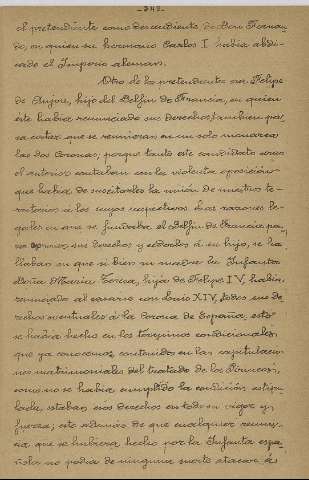 -348-
el pretendiente como descendiente de Don Fernan-
do, en quien su hermano Carlos I había abdi-
cado el Imperio aleman.
Otro de los pretendientes era Felipe
de Anjou, hijo del Delfin de Francia, en quien
este habia renunciado sus derechos tambien pa-
ra evitar que se reunieran en un solo monarca
las dos Coronas, porque tanto este candidato como
el anterior contaban con la violenta oposicion
que habia de suscitarles la unión de nuestros te-
rritorios á los suyos respectivos. Las razones le-
gales en que se fundaba el Delfin de Francia pa-
ra apoyar sus derechos y cederlos á su hijo, se ha-
llaban en que si bien su madre la Infanta
Doña Maria Teresa, hija de Felipe IV, habia
renunciado al casarse con Luis XIV, todos sus de-
rechos eventuales á la corona de España, esto
se habia hecho en los terminos condicionales
que ya conocemos, contenidos en las capitulacio-
nes matrimoniales del tratado de los Pirineos,
como no se habia cumplido la condición estipu-
lada, estaban esos derechos en todo su vigor y
fuerza; esto ademas de que cualquier renun-
cia que se hubiera hecho por la Infanta espa-
ñola no podia de ninguna suerte atacar á